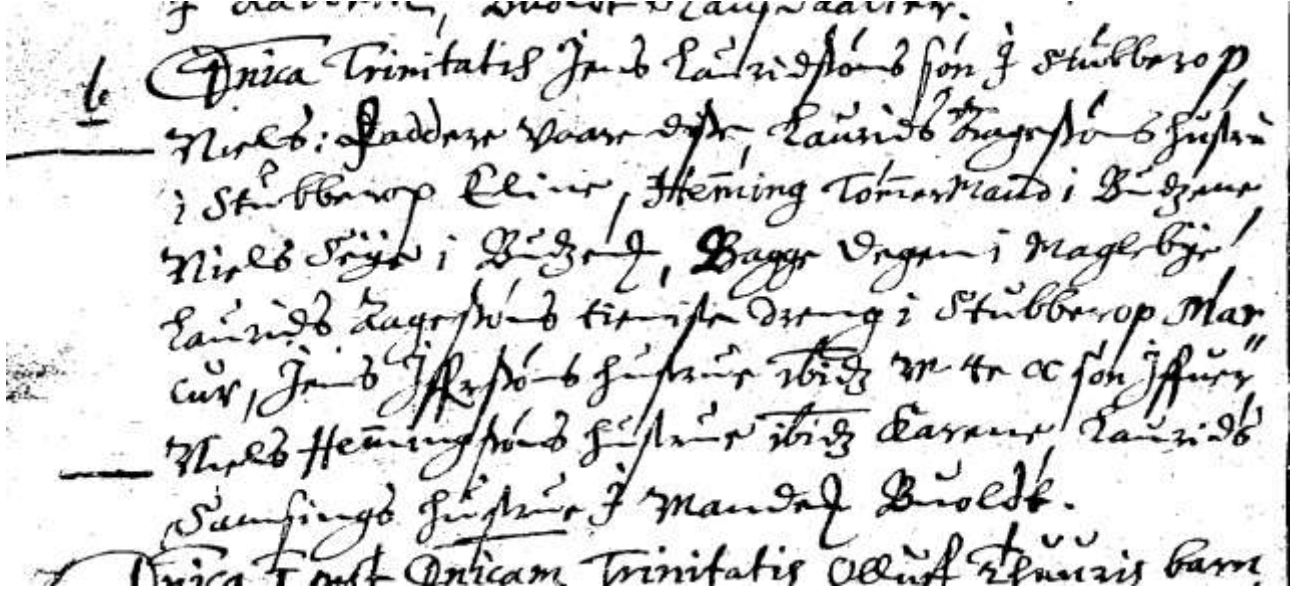 Dnica Trinitatis Jens Lauridsøns søn I Stubberop,
Niels: Faddere vaare disse, Laurids Aagesøns hustru
i Stubberop Eline, Hem̄ing Tøm̄ermand i Budzene,
Niels Feÿe i Budzene, Bagge Degen i Maglebÿe,
Laurids Aagesøns tieniste dreng i Stubberop Mar
cus, Jens Iffersøns hustrue ibidz M te oc søn Iffuer
Niels Hem̄ingsøns hustrue ibidz Karene, Laurids
Samsings hustrue I Mande Buoldt.
Dnica 1 post Dnicam Trinitatis Olluff barn